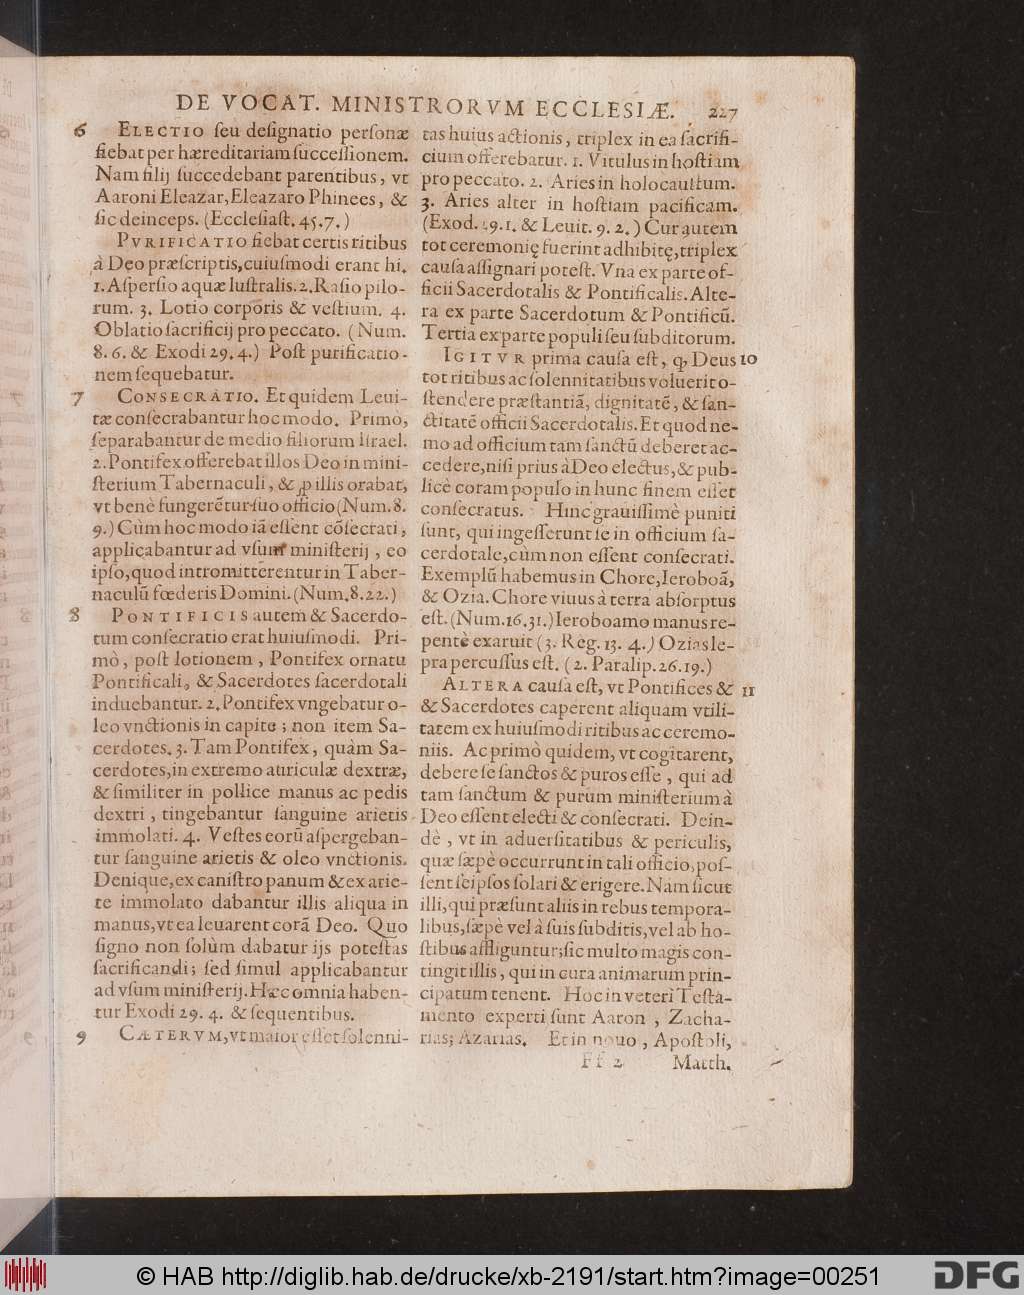 DE VOCAT. MINISTRORVM ECCLESIÆ. 227
6 ELECTIO ſeu deſignatio perſonæ
fiebat per hæreditariam ſucceſſionem.
Nam filij ſuccedebant parentibus, vt
Aaroni Eleazar, Eleazaro Phinees, &
ſic deinceps. (Eccleſiaſt. 45. 7.)
PVRIFICATIO fiebat certis ritibus
à Deo præſcriptis, cuiuſmodi erant hi.
1. Aſperſio aquæ luſtralis. 2. Raſio pilo-
rum. 3. Lotio corporis & veſtium. 4.
Oblatio ſacrificij pro peccato. (Num.
8. 6. & Exodi 29. 4.) Poſt purificatio-
nem ſequebatur.
7 CONSECRATIO. Et quidem Leui-
tæ conſecrabantur hoc modo. Primo,
ſeparabantur de medio filiorum Iſrael.
2. Pontifex offerebat illos Deo in mini-
ſterium Tabernaculi, & ꝓ illis orabat,
vt benè fungerētur ſuo officio (Num. 8.
9.) Cùm hoc modo iã eſſent cõſecrati,
applicabantur ad vſum miniſterij, eo
ipſo, quod intromitterentur in Taber-
naculũ fœderis Domini. (Num. 8. 22.)
8 PONTIFICIS autem & Sacerdo-
tum conſecratio erat huiuſmodi. Pri-
mò, poſt lotionem, Pontifex ornatu
Pontificali, & Sacerdotes ſacerdotali
induebantur. 2. Pontifex vngebatur o-
leo vnctionis in capite; non item Sa-
cerdotes. 3. Tam Pontifex, quàm Sa-
cerdotes, in extremo auriculæ dextræ,
& ſimiliter in pollice manus ac pedis
dextri, tingebantur ſanguine arietis
immolati. 4. Veſtes eorũ aſpergeban-
tur ſanguine arietis & oleo vnctionis.
Denique, ex caniſtro panum & ex arie-
te immolato dabantur illis aliqua in
manus, vt ea leuarent corã Deo. Quo
ſigno non ſolùm dabatur ijs poteſtas
ſacrificandi; ſed ſimul applicabantur
ad vſum miniſterij. Hæc omnia haben-
tur Exodi 29. 4. & ſequentibus.
9 CÆTERVM, vt maior eſſet ſolenni-
tas huius actionis, triplex in ea ſacrifi-
cium offerebatur. 1. Vitulus in hoſtiam
pro peccato. 2. Aries in holocauſtum.
3. Aries alter in hoſtiam pacificam.
(Exod. 29. 1. & Leuit. 9. 2.) Cur autem
tot ceremonię fuerint adhibitę, triplex
cauſa aſſignari poteſt. Vna ex parte of-
ficii Sacerdotalis & Pontificalis. Alte-
ra ex parte Sacerdotum & Pontificũ.
Tertia ex parte populi ſeu ſubditorum.
IGITVR prima cauſa eſt, ꝙ Deus 10
tot ritibus ac ſolennitatibus voluerit o-
ſtendere præſtantiã, dignitatē, & ſan-
ctitatē officii Sacerdotalis. Et quod ne-
mo ad officium tam ſanctũ deberet ac-
cedere, niſi prius à Deo electus, & pub-
licè coram populo in hunc finem eſſet
conſecratus. Hinc grauiſſimè puniti
ſunt, qui ingeſſerunt ſe in officium ſa-
cerdotale, cùm non eſſent conſecrati.
Exemplũ habemus in Chore, Ieroboã,
& Ozia. Chore viuus à terra abſorptus
eſt. (Num. 16. 31.) Ieroboamo manus re-
pentè exaruit (3. Reg. 13. 4.) Ozias le-
pra percuſſus eſt. (2. Paralip. 26. 19.)
ALTERA cauſa eſt, vt Pontifices & 11
& Sacerdotes caperent aliquam vtili-
tatem ex huiuſmodi ritibus ac ceremo-
niis. Ac primò quidem, vt cogitarent,
debere ſe ſanctos & puros eſſe, qui ad
tam ſanctum & purum miniſterium à
Deo eſſent electi & conſecrati. Dein-
dè, vt in aduerſitatibus & periculis,
quæ ſæpè occurrunt in tali officio, poſ-
ſent ſeipſos ſolari & erigere. Nam ſicut
illi, qui præſunt aliis in rebus tempora-
libus, ſæpè vel à ſuis ſubditis, vel ab ho-
ſtibus affliguntur; ſic multo magis con-
tingit illis, qui in cura animarum prin-
cipatum tenent. Hoc in veteri Teſta-
mento experti ſunt Aaron, Zacha-
rias, Azarias. Et in nouo, Apoſtoli,
Ff 2 Matth.
© HAB http://diglib.hab.de/drucke/xb-2191/start.htm?image=00251 DFG